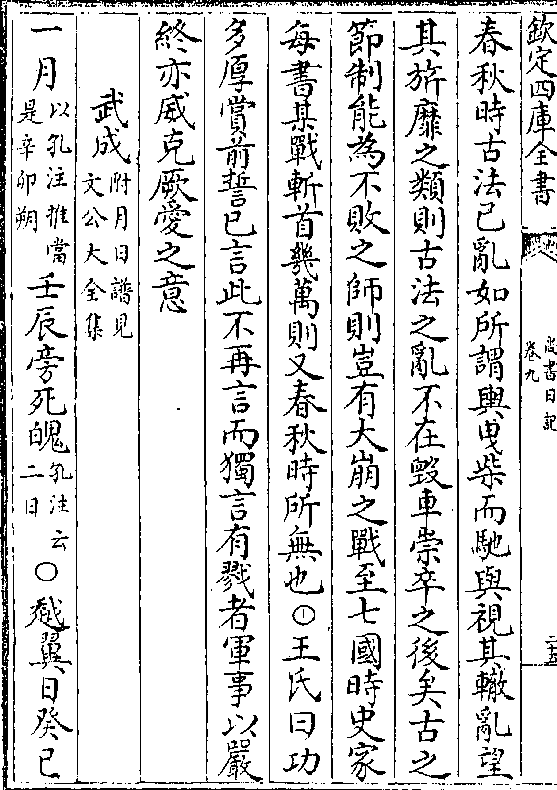 欽定四庫全書
尚書日記
卷九
春秋時古法已亂如所謂輿曳柴而馳與視其轍亂望
其旂靡之類則古法之亂不在毀車崇卒之後矣古之
節制能為不敗之師則豈有大崩之戰至七國時史家
每書某戰斬首幾萬則又春秋時所無也○王氏曰功
多厚賞前誓已言此不再言而獨言有戮者軍事以嚴
終亦威克厥愛之意
武成附月日譜見文公大全集
一月以孔注推當是辛卯朔壬辰旁死魄孔注云二日○越翼日癸巳